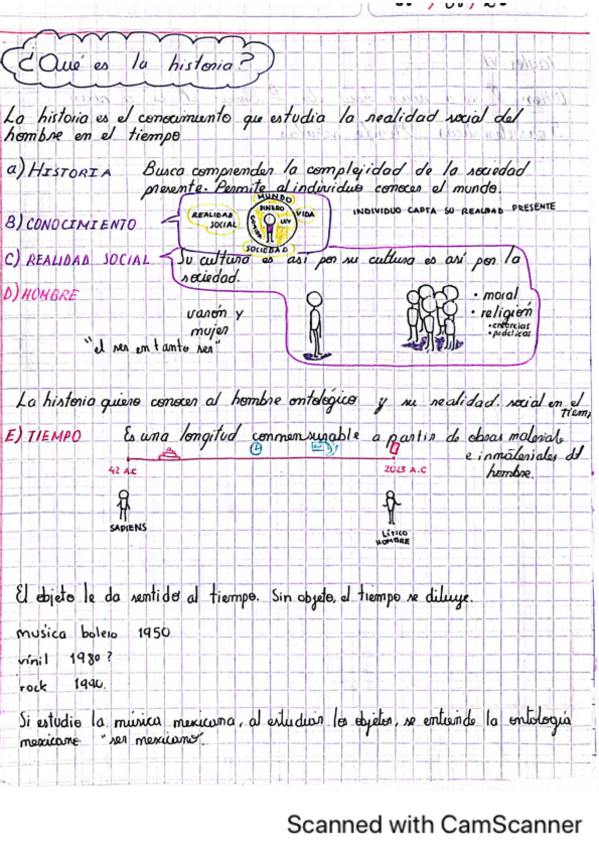 ¿Qué es la historia?
La historia es el conocimiento que estudia la realidad social del
hombre en el tiempo
a) HISTORIA Busca comprender la complejidad de la sociedad
presente. Permite al individuo conocer el mundo.
B) CONOCIMIENTO
REALIDAD
SOCIAL
MUNDO
DINERO
LEY
VIDA
SOCIEDAD
INDIVIDUO CAPTA SU REALIDAD PRESENTE
C) REALIDAD SOCIAL Su cultura es así por su cultura es así por la
sociedad.
D) HOMBRE
varón y
mujer
"el ser en tanto ser"
• moral
• religión
• creencias
• prácticas
La historia quiere conocer al hombre ontológico y su realidad social en el
tiem
E) TIEMPO Es una longitud conmensurable a partir de obras materiale
e inmateriales dl
hombre.
42 A.C
2023 A.C
SAPIENS
LÍTICO
HOMBRE
El objeto le da sentido al tiempo. Sin objeto, el tiempo se diluye.
música bolero 1950
vinil 1980?
rock 1990.
Si estudio la música mexicana, al estudiar los objetos, se entiende la ontología
mexicana "ser mexicano".
Scanned with CamScanner